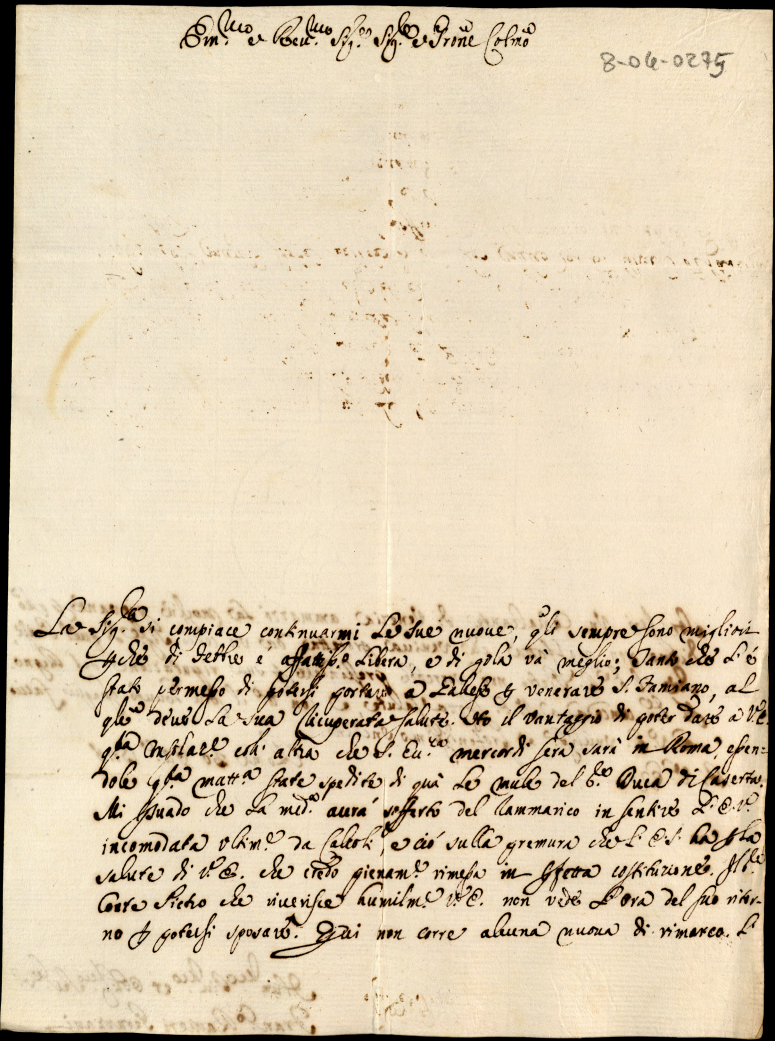 Em.mo e Rev.mo Sig.r Sig.r e Prone Colmo
8-06-0275
La Sig.ra si compiace continuarmi le sue nuove, q.li sempre sono migliori
che di febre é affatto libera, e di gola và meglio; tanto che l' é
stato permesso di potersi portare a venerare S. Damiano, al
q.le deve la sua ricuperata salute. Ho il vantaggio di poter dare a V.E.
q.ta che S. Ecc.za mercordi sera sarà in Roma, essen-
dole q.ta matt.a state spedite di quà le mule del S.r Duca di Caserta.
Mi suado che la med.a avrà sofferto del rammarico in sentire l' E.V.
incomodata ultim.e da e ciò sulla premura che l' E.S. ha la
salute di V.E. che credo pienam.e rimessa in fetta costituzione. Il S.r
Conte Pietro che riverisce humilm.e V.E. non vede l' ora del suo ritor-
no potersi sposare. Qui non corre alcuna nuova di rimarco. L'